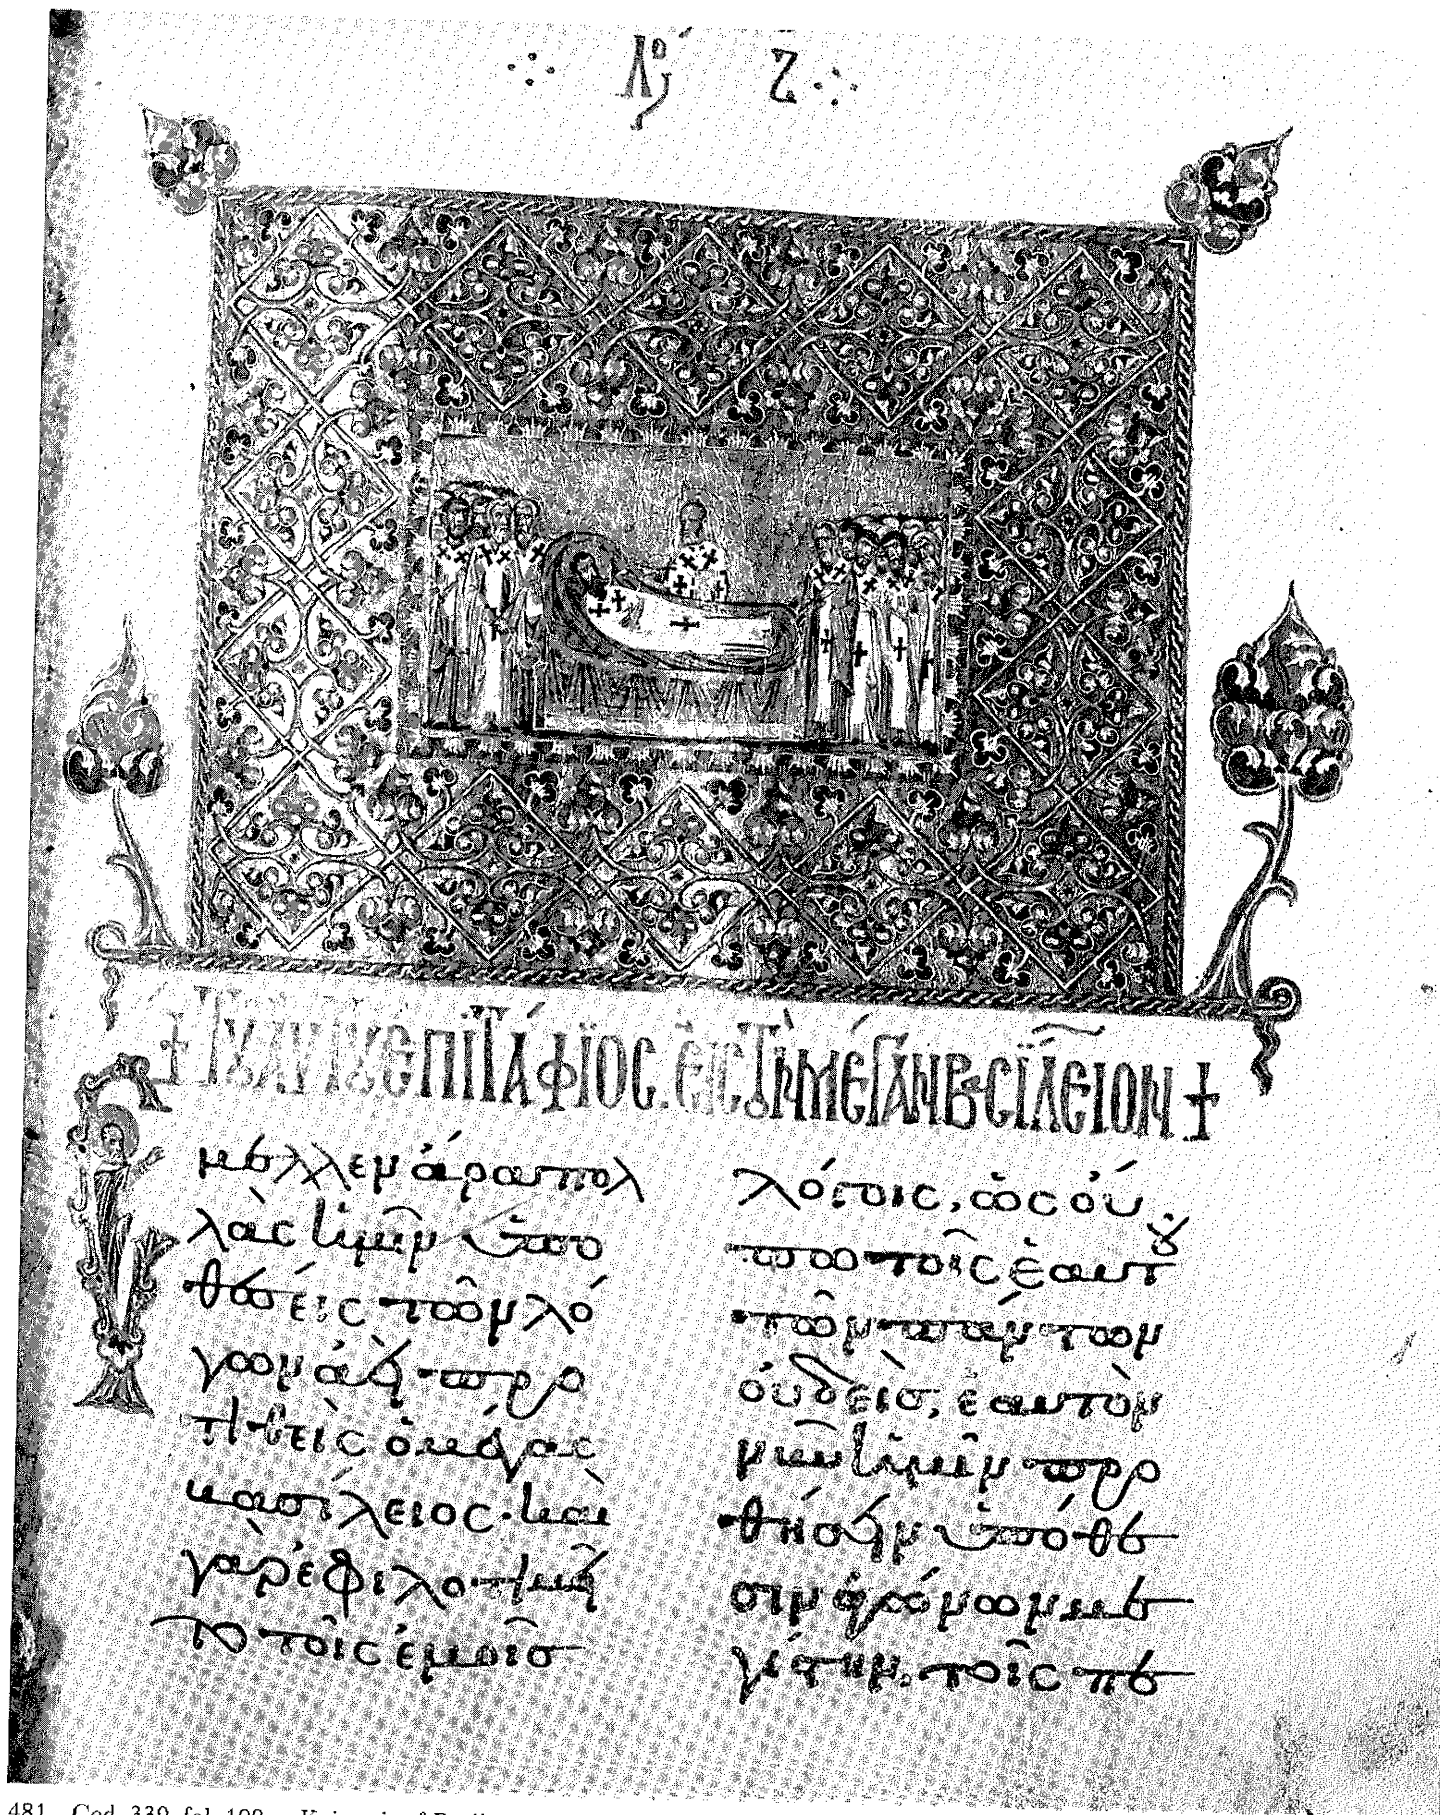 Λόγ Ζ
+ Τοῦ αὐτοῦ ἐπιτάφιος εἰς τὸν μέγαν βασίλειον +
Ἔμελλεν ἄρα πολ
λὰς ἡμῖν ὑπο
θέσεις τῶν λό
γων ἀεὶ προ
τιθεὶς ὁ μέγας
βασίλειος· καὶ
γὰρ ἐφιλοτιμεῖ
το τοῖς ἐμοῖς
λόγοις, ὡς οὔ
πω τοῖς ἑαυτοῦ
τῶν πάντων
οὐδείς, ἑαυτὸν
νῦν ἡμῖν προ
θήσειν ὑπόθε
σιν ἀγώνων με
γίστην, τοῖς πε
481. Cod. 339, fol. 109